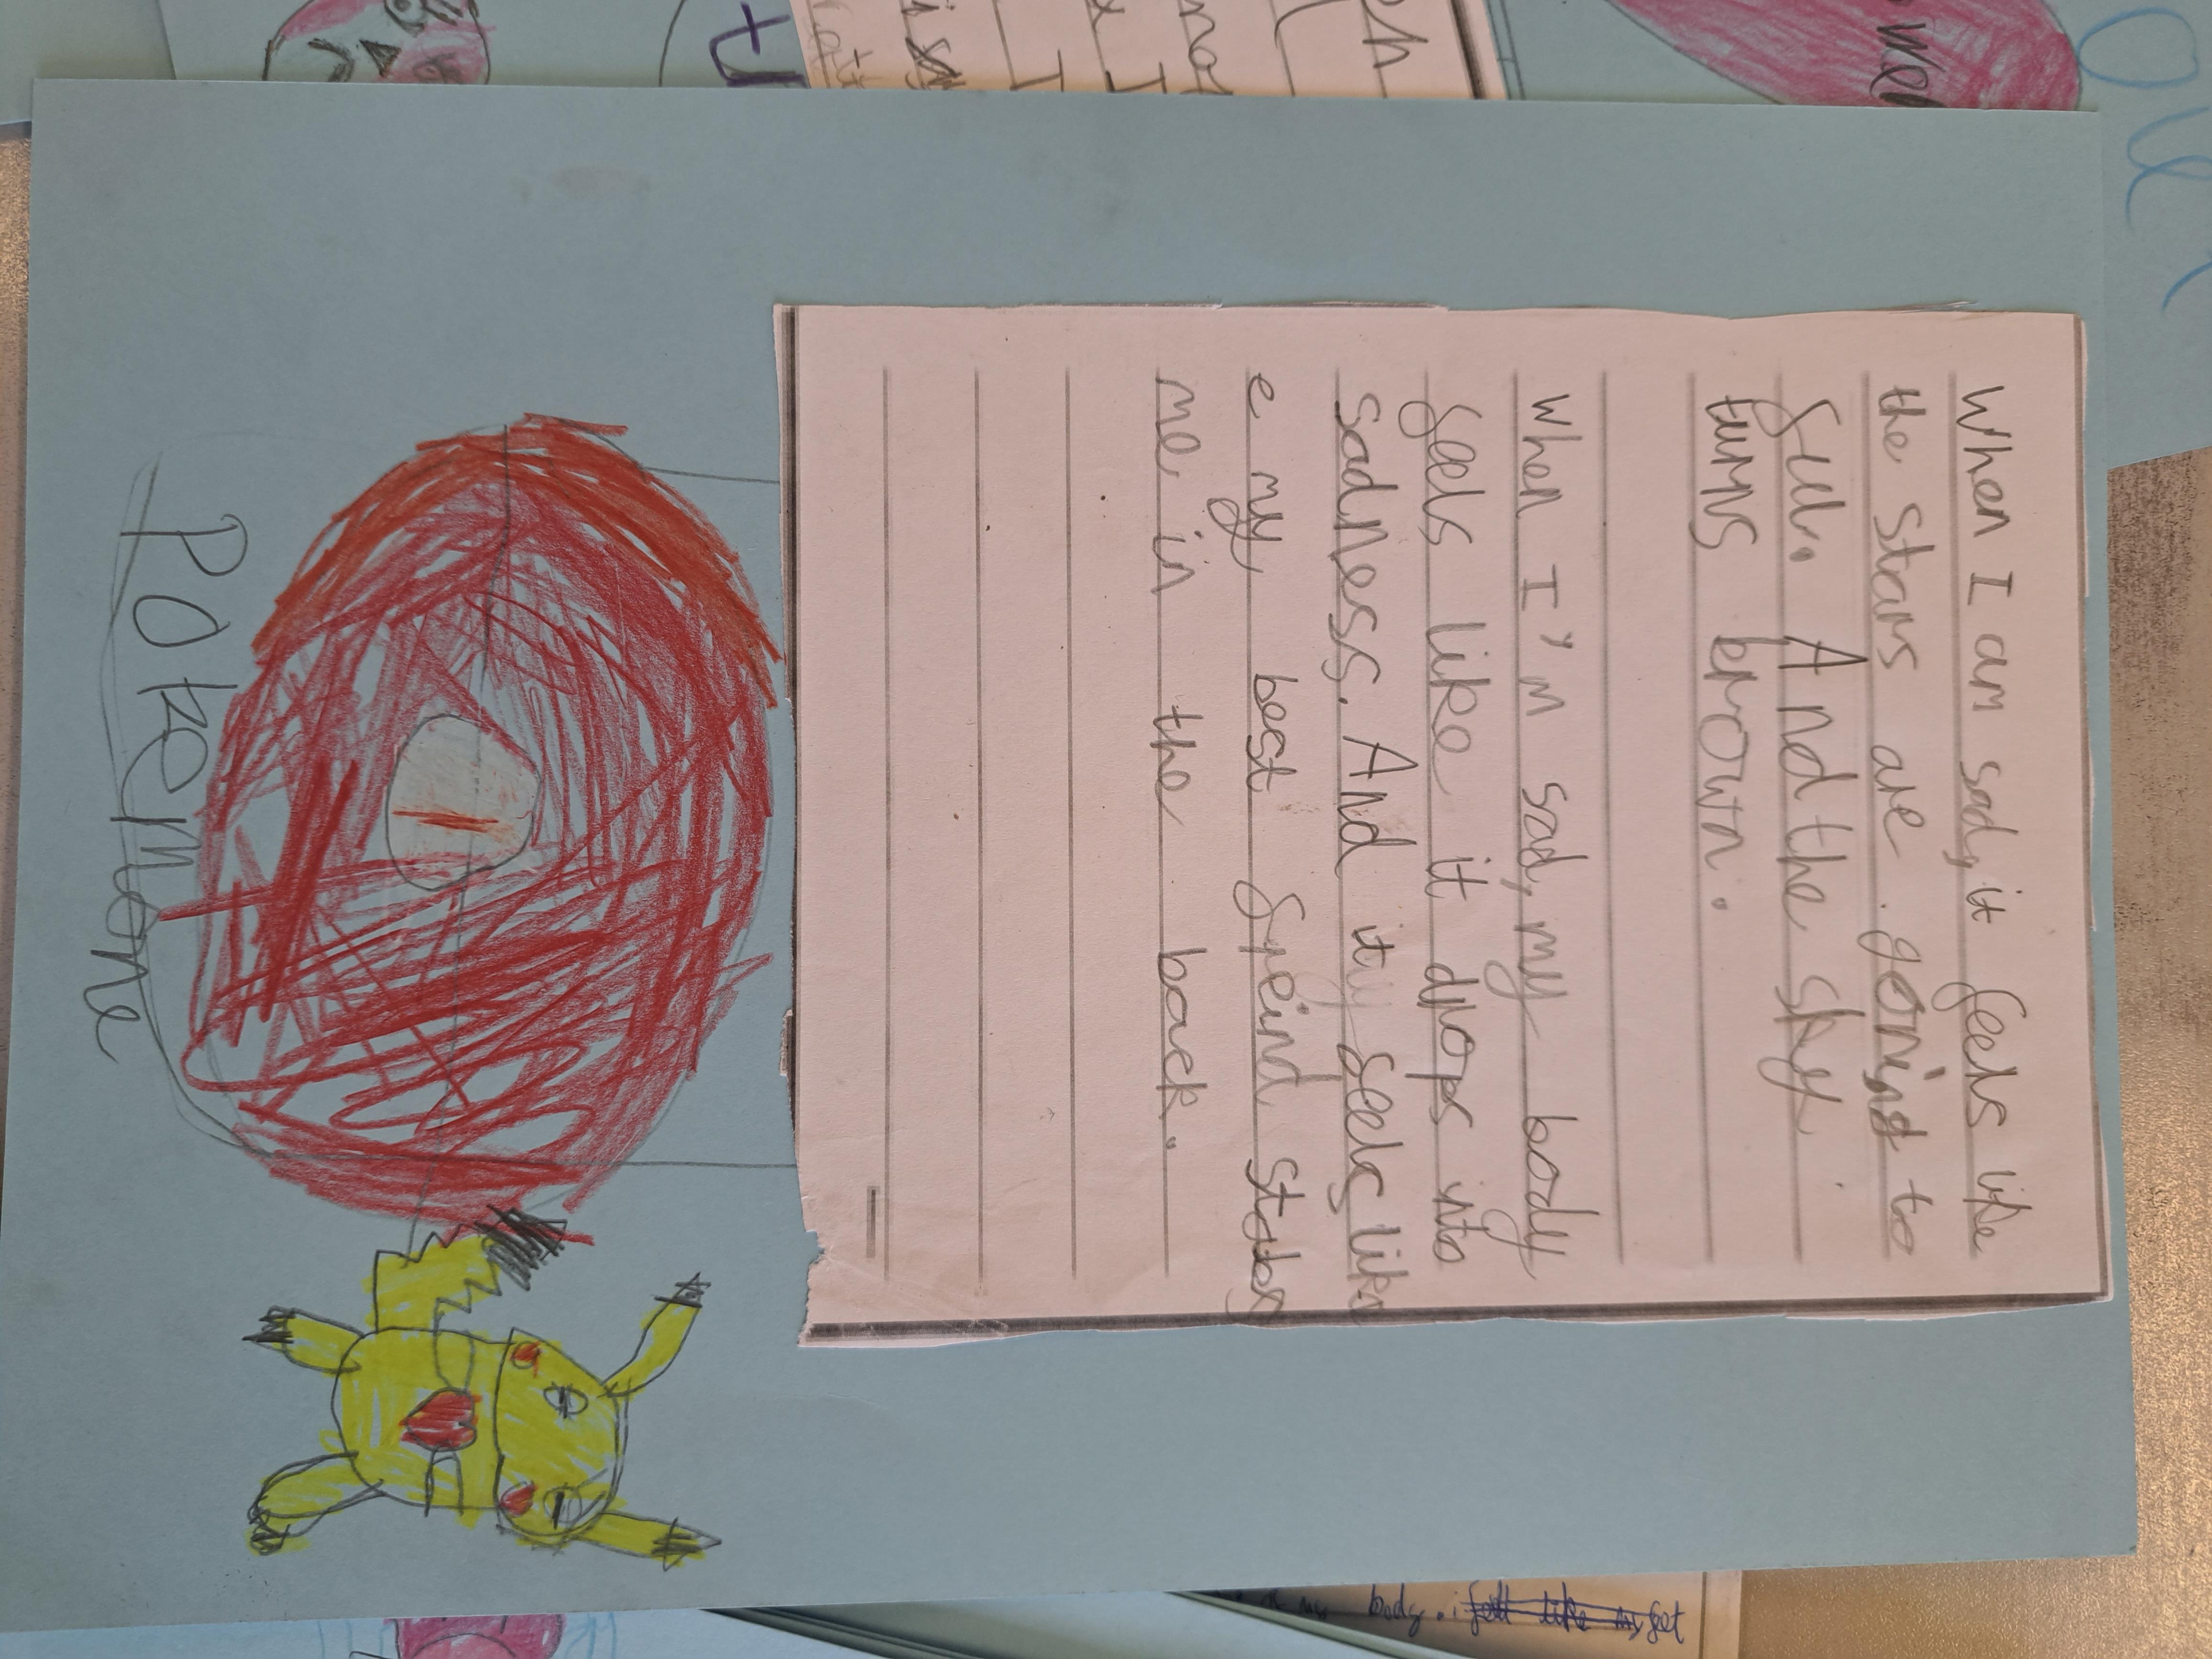 When I am sad, it feels like
the stars are going to
fall. And the sky
turns brown.
When I'm sad, my body
feels like it drops into
sadness. And it feels lik
e my best freind stabs
me in the back.
Pokemone
body. i felt like my feet